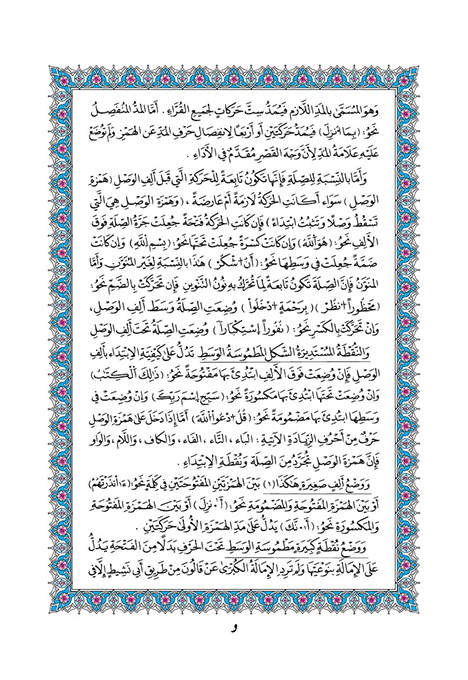 وَهوَ المُسَمَّىٰ بالمدِ اللَّازمِ فَيُمَدُّ سِتَّ حَرَكَاتٍ لجَمِيعِ القُرَّاءِ . أمَّا المَدُّ المُنفَصِلُ
نَحوُ : (بِمَا اُنزِلَ) فَيُمَدُّ حَرَكَتَيْنِ أَوْ أَرْبَعًا لِانفِصَالِ حَرْفِ المَدِّ عَنِ الهَمْزِ وَلَمْ تُوضَعْ
عَلَيْهِ عَلَامَةُ المَدِّ لِأَنَّ وَجْهَ القَصْرِ مُقَدَّمٌ فِي الأَدَاءِ .
وَأَمَّا بِالنِّسْبَةِ لِلصِّلَةِ فَإِنَّهَا تَكُونُ تَابِعَةً لِلْحَرَكَةِ الَّتِي قَبْلَ أَلِفِ الوَصْلِ (هَمْزَةِ
الوَصْلِ) سَوَاء أَكَانَتِ الحَرَكَةُ لَازِمَةً أَمْ عَارِضَةً ، (وَهَمْزَةُ الوَصْلِ هِيَ الَّتِي
تَسْقُطُ وَصْلًا وَتَثْبُتُ ابْتِدَاءً) فَإِن كَانَتِ الحَرَكَةُ فَتْحَةً جُعِلَتْ جَرَّةُ الصِّلَةِ فَوْقَ
الأَلِفِ نَحْوُ : (هُوَ ٱللَّهُ) وَإِن كَانَتْ كَسْرَةً جُعِلَتْ تَحْتَهَا نَحْوُ : (بِسْمِ ٱللَّهِ) وَإِن كَانَتْ
ضَمَّةً جُعِلَتْ فِي وَسَطِهَا نَحْوُ : (أَنُ ٱشْكُرْ) هَذَا بِالنِّسْبَةِ لِغَيْرِ المُنَوَّنِ وَأَمَّا
المُنَوَّنُ فَإِنَّ الصِّلَةَ تَكُونُ تَابِعَةً لِمَا تَحَرَّكَ بِهِ نُونُ التَّنْوِينِ فَإِن تَحَرَّكَتْ بِالضَّمِّ نَحْوُ :
(مَحْظُورًا ٱنظُرْ) (بِرَحْمَةٍ ٱدْخُلُوا) وُضِعَتِ الصِّلَةُ وَسَطَ أَلِفِ الوَصْلِ ،
وَإِن تَحَرَّكَتْ بِالكَسْرِ نَحْوُ : (نُفُورًا ٱسْتِكْبَارًا) وُضِعَتِ الصِّلَةُ تَحْتَ أَلِفِ الوَصْلِ .
وَالنُّقْطَةُ المُسْتَدِيرَةُ الشَّكْلِ المَطْمُوسَةُ الوَسَطِ تَدُلُّ عَلَىٰ كَيْفِيَّةِ الِابْتِدَاءِ بِأَلِفِ
الوَصْلِ فَإِن وُضِعَتْ فَوْقَ الأَلِفِ ابْتُدِئَ بِهَا مَفْتُوحَةً نَحْوُ : (ذَٰلِكَ ٱلْكِتَٰبُ)
وَإِن وُضِعَتْ تَحْتَهَا ابْتُدِئَ بِهَا مَكْسُورَةً نَحْوُ : (سَبِّحِ ٱسْمَ رَبِّكَ) وَإِن وُضِعَتْ فِي
وَسَطِهَا ابْتُدِئَ بِهَا مَضْمُومَةً نَحْوُ : (قُلُ ٱدْعُوا ٱللَّهَ) أَمَّا إِذَا دَخَلَ عَلَىٰ هَمْزَةِ الوَصْلِ
حَرْفٌ مِنْ أَحْرُفِ الزِّيَادَةِ الآتِيَةِ : البَاء ، التَّاء ، الفَاء ، وَالكَاف ، وَاللَّام ، وَالوَاو
فَإِنَّ هَمْزَةَ الوَصْلِ تُجَرَّدُ مِنَ الصِّلَةِ وَنُقْطَةِ الِابْتِدَاءِ .
وَوَضْعُ أَلِفٍ صَغِيرَةٍ هَكَذَا (ا) بَيْنَ الهَمْزَتَيْنِ المَفْتُوحَتَيْنِ فِي كَلِمَةٍ نَحْوُ : (ءَاٰنذَرْتَهُمْ)
أَوْ بَيْنَ الهَمْزَةِ المَفْتُوحَةِ وَالمَضْمُومَةِ نَحْوُ : (أَٰ۟نزِلَ) أَوْ بَيْنَ الهَمْزَةِ المَفْتُوحَةِ
وَالمَكْسُورَةِ نَحْوُ : (أَٰ۪نَّكَ) يَدُلُّ عَلَىٰ مَدِّ الهَمْزَةِ الأُولَىٰ حَرَكَتَيْنِ .
وَوَضْعُ نُقْطَةٍ كَبِيرَةٍ مَطْمُوسَةِ الوَسَطِ تَحْتَ الحَرْفِ بَدَلًا مِنَ الفَتْحَةِ يَدُلُّ
عَلَى الإِمَالَةِ بِنَوْعَيْهَا وَلَمْ تَرِدِ الإِمَالَةُ الكُبْرَىٰ عَنْ قَالُونَ مِنْ طَرِيقِ أَبِي نَشِيطٍ إِلَّا فِي
و